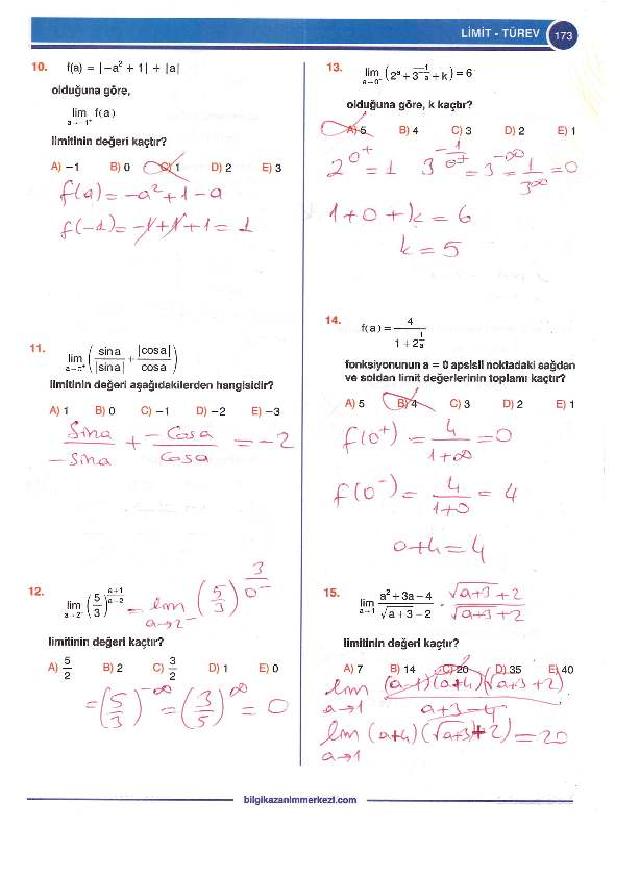 LİMİT - TÜREV 173
10. f(a) = |-a² + 1| + |a|
olduğuna göre,
lim f(a)
limitinin değeri kaçtır?
A) -1 B) 0 C) 1 D) 2 E) 3
f(a) = -a² + 1 - a
f(-1) = -1 + 1 + 1 = 1
11. lim ( sina / |sina| + |cosa| / cosa )
limitinin değeri aşağıdakilerden hangisidir?
A) 1 B) 0 C) -1 D) -2 E) -3
Sina / -Sina + -Cosa / Cosa = -2
12. lim a→2⁻ (5/3)^(a+1 / a-2) = lim a→2⁻ (5/3)^(3/0⁻)
limitinin değeri kaçtır?
A) 5/2 B) 2 C) 3/2 D) 1 E) 0
= (5/3)^-∞ = (3/5)^∞ = 0
13. lim (2^a + 3^(-1/a) + k) = 6
olduğuna göre, k kaçtır?
A) 5 B) 4 C) 3 D) 2 E) 1
2^0⁺ = 1 3^(-1/0⁺) = 3^-∞ = 1/3^∞ = 0
1 + 0 + k = 6
k = 5
14. f(a) = 4 / 1 + 2^(1/a)
fonksiyonunun a = 0 apsisli noktadaki sağdan
ve soldan limit değerlerinin toplamı kaçtır?
A) 5 B) 4 C) 3 D) 2 E) 1
f(0⁺) = 4 / 1+∞ = 0
f(0⁻) = 4 / 1+0 = 4
0+4 = 4
15. lim a→1 a² + 3a - 4 / √a + 3 - 2 · √a+3 + 2 / √a+3 + 2
limitinin değeri kaçtır?
A) 7 B) 14 C) 20 D) 35 E) 40
lim a→1 (a-1)(a+4)(√a+3 + 2) / a+3-4
lim a→1 (a+4)(√a+3 + 2) = 20
bilgikazanimmerkezi.com